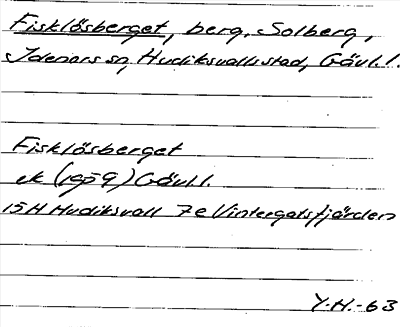 Fisklösberget, berg, Solberg,
Idenors sn, Hudiksvalls stad, Gävl.l.
Fisklösberget
ek (1959) Gävl.l.
15H Hudiksvall 7e Vintergatsfjärden
Y.H.-63